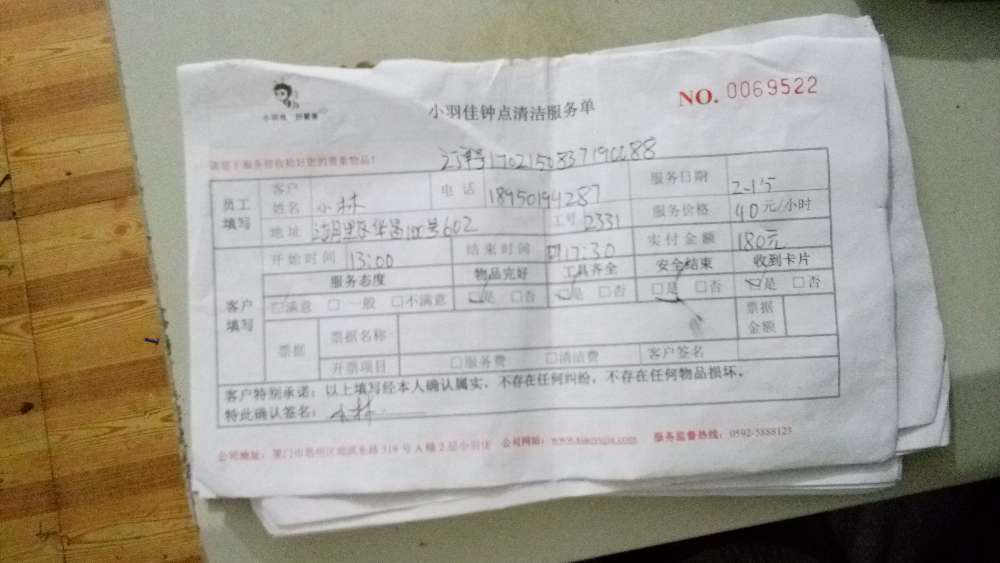 小羽佳
小羽佳钟点清洁服务单
NO. 0069522
请客户服务前收拾好您的贵重物品!
员工填写
客户姓名 小林 电话 18950194287 服务日期 2-15
地址 602 工号 2331 服务价格 40元/小时
开始时间 13:00 结束时间 17:30 实付金额 180元
客户填写
服务态度 物品完好 工具齐全 安全结束 收到卡片
☑满意 □一般 □不满意 ☑是 □否 ☑是 □否 ☑是 □否 ☑是 □否
票据 票据名称 票据金额
开票项目 □服务费 □清洁费 客户签名
客户特别承诺：以上填写经本人确认属实，不存在任何纠纷，不存在任何物品损坏。
特此确认签名： 小林
公司地址：厦门市思明区 319号A幢2层小羽佳 公司网站： 服务监督热线：0592-5888123